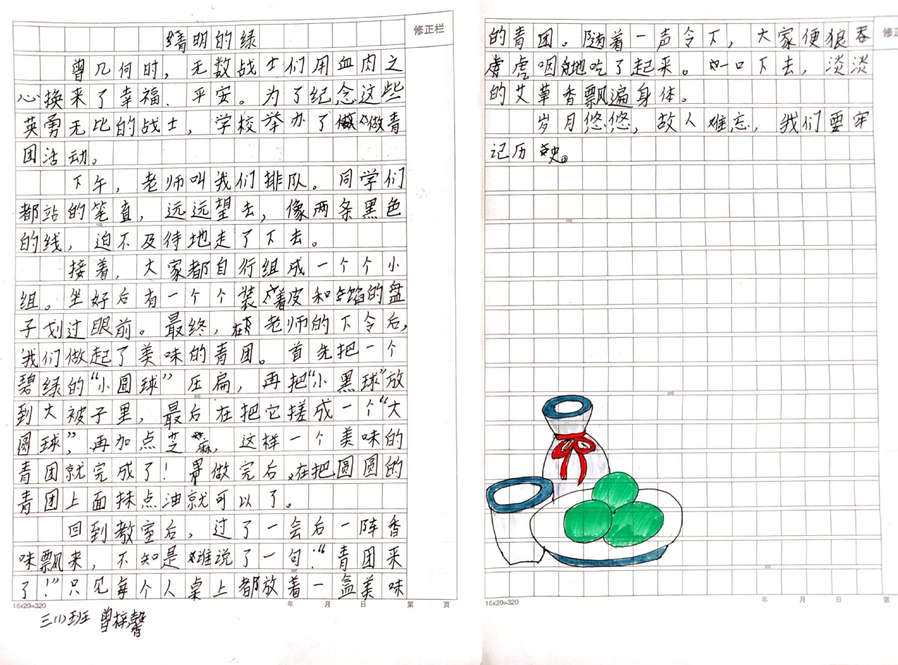 修正栏
清明的绿
曾几何时，无数战士们用血肉之
心换来了幸福、平安。为了纪念这些
英勇无比的战士，学校举办了做青
团活动。
下午，老师叫我们排队。同学们
都站的笔直，远远望去，像两条黑色
的线，迫不及待地走了下去。
接着，大家都自行组成一个个小
组。坐好后有一个个装着皮和馅的盘
子划过眼前。最终，在老师的下令后，
我们做起了美味的青团。首先把一个
碧绿的“小圆球”压扁，再把“小黑球”放
到大被子里，最后在把它搓成一个“大
圆球”，再加点芝麻，这样一个美味的
青团就完成了！做完后，在把圆圆的
青团上面抹点油就可以了。
回到教室后，过了一会后一阵香
味飘来，不知是谁说了一句：“青团来
了！”只见每个人桌上都放着一盒美味
16x20=320 年 月 日 第 页
三(1)班 曾梓馨
修正
的青团。随着一声令下，大家便狼吞
虎咽地吃了起来。一口下去，淡淡
的艾草香飘遍身体。
岁月悠悠，故人难忘，我们要牢
记历史。
16x20=320 年 月 日 第